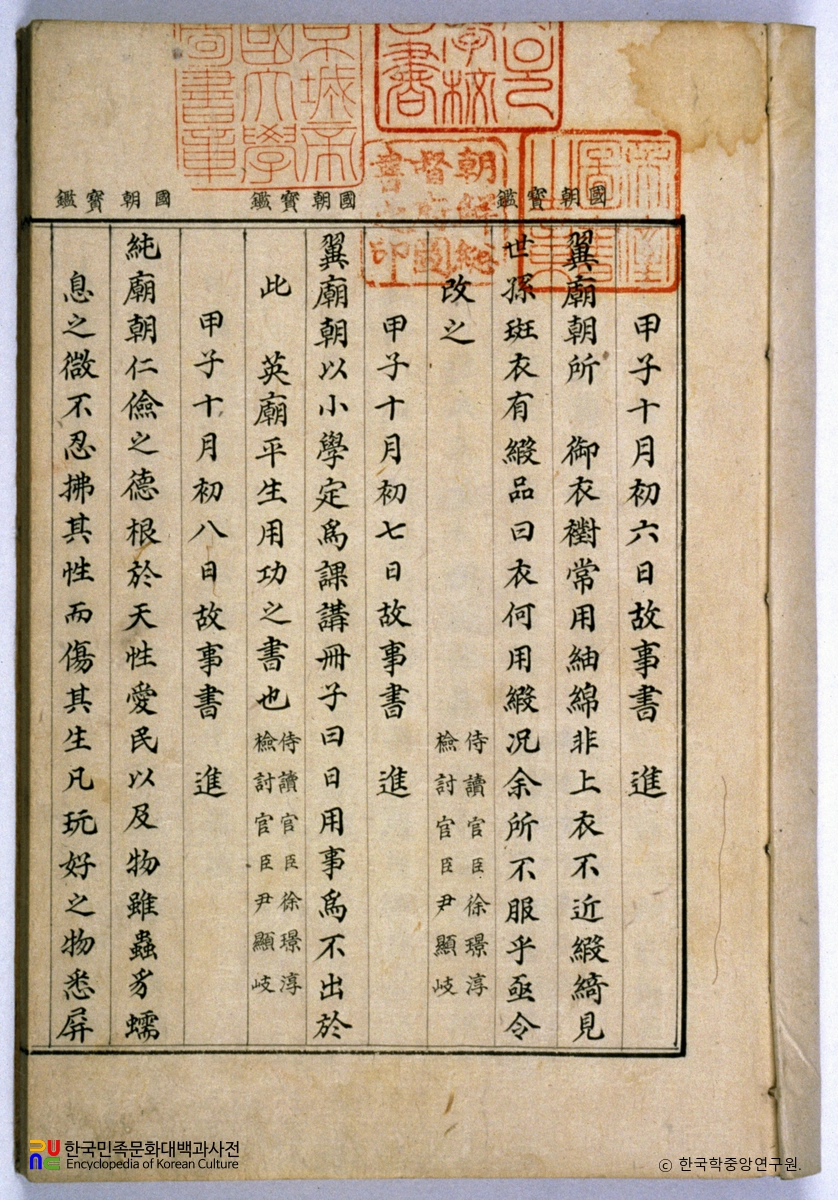 京城帝
國大學
圖書章
朝鮮總
督府圖
書之印
國朝寶鑑
國朝寶鑑
國朝寶鑑
甲子十月初六日故事書 進
翼廟朝所 御衣襨常用紬綿非上衣不近緞綺見
世孫斑衣有緞品曰衣何用緞况余所不服乎亟令
改之
侍讀官臣徐璟淳
檢討官臣尹顯岐
甲子十月初七日故事書 進
翼廟朝以小學定爲課講冊子曰日用事爲不出於
此 英廟平生用功之書也
侍讀官臣徐璟淳
檢討官臣尹顯岐
甲子十月初八日故事書 進
純廟朝仁儉之德根於天性愛民以及物雖蟲豸蠕
息之微不忍拂其性而傷其生凡玩好之物悉屏
한국민족문화대백과사전
Encyclopedia of Korean Culture
ⓒ 한국학중앙연구원.